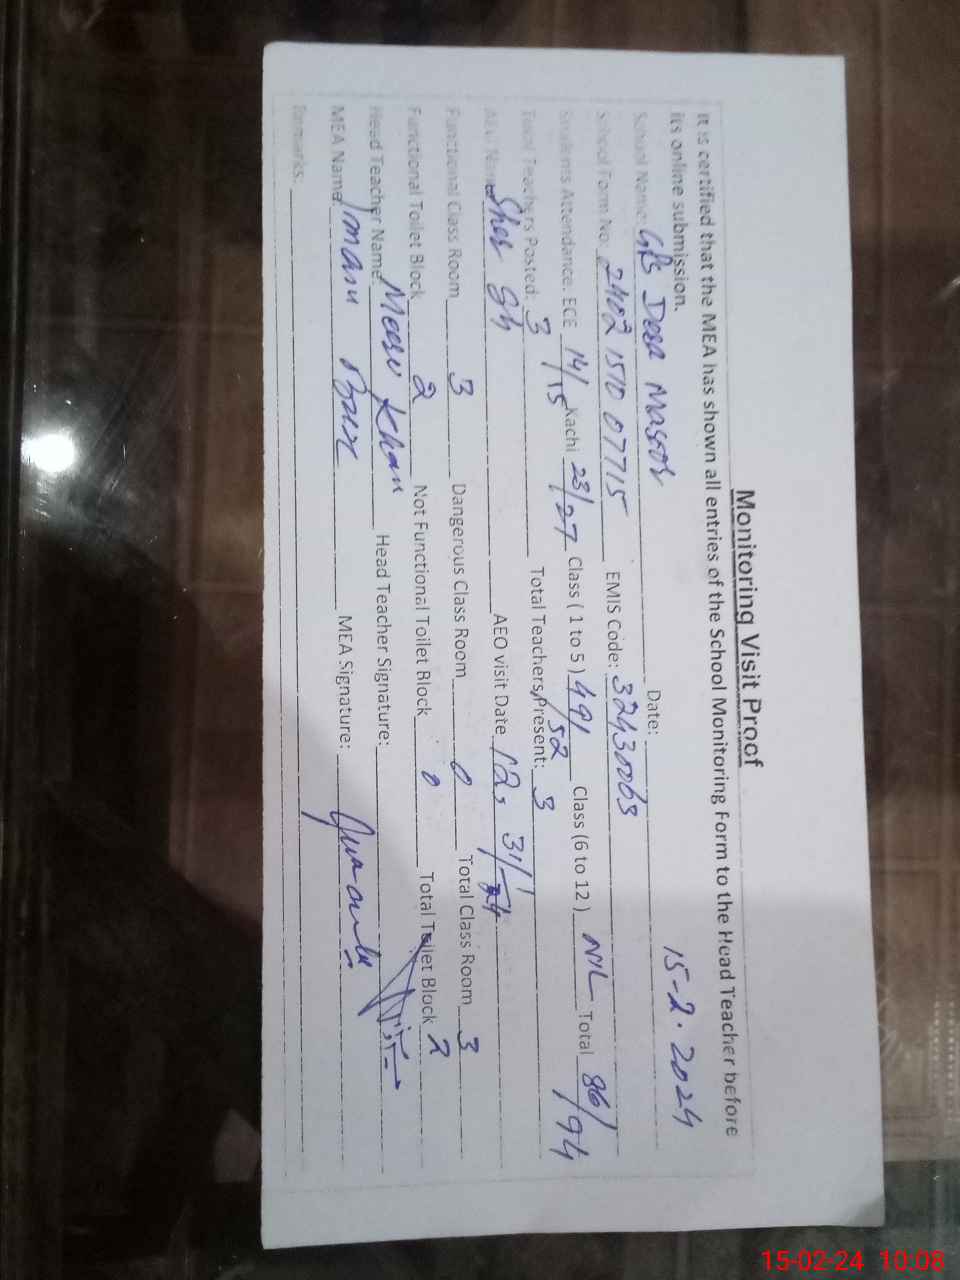 Monitoring Visit Proof
It is certified that the MEA has shown all entries of the School Monitoring Form to the Head Teacher before
its online submission.
School Name: GPS Dera Date: 15-2.2024
School Form No. 2402 1510 07715 EMIS Code: 32430063
Students Attendance: ECE 14/15 Kachi 23/27 Class ( 1 to 5 ) 49/52 Class (6 to 12 ) NIL Total 86/94
Total Teachers Posted: 3 Total Teachers Present: 3
AEO Name Sher AEO visit Date 12, 31/-24
Functional Class Room 3 Dangerous Class Room 0 Total Class Room 3
Functional Toilet Block 2 Not Functional Toilet Block 0 Total Toilet Block 2
Head Teacher Name: Meeru Khan Head Teacher Signature:
MEA Name: Imam Bux MEA Signature:
Remarks:
15-02-24 10:08